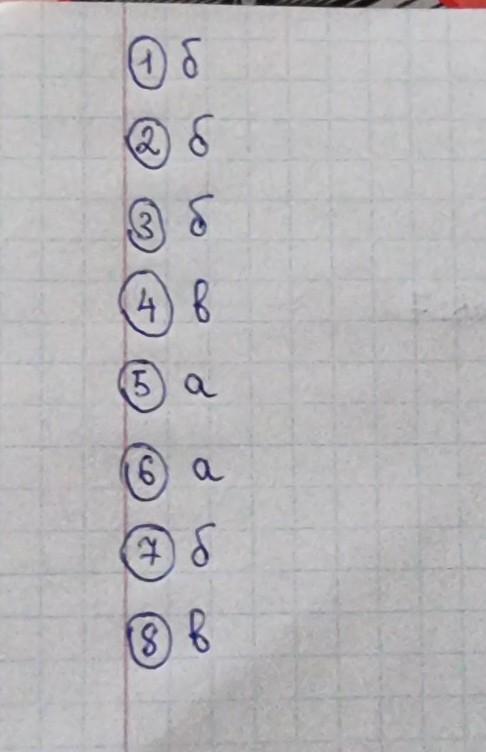 1 б
2 б
3 б
4 в
5 а
6 а
7 б
8 в